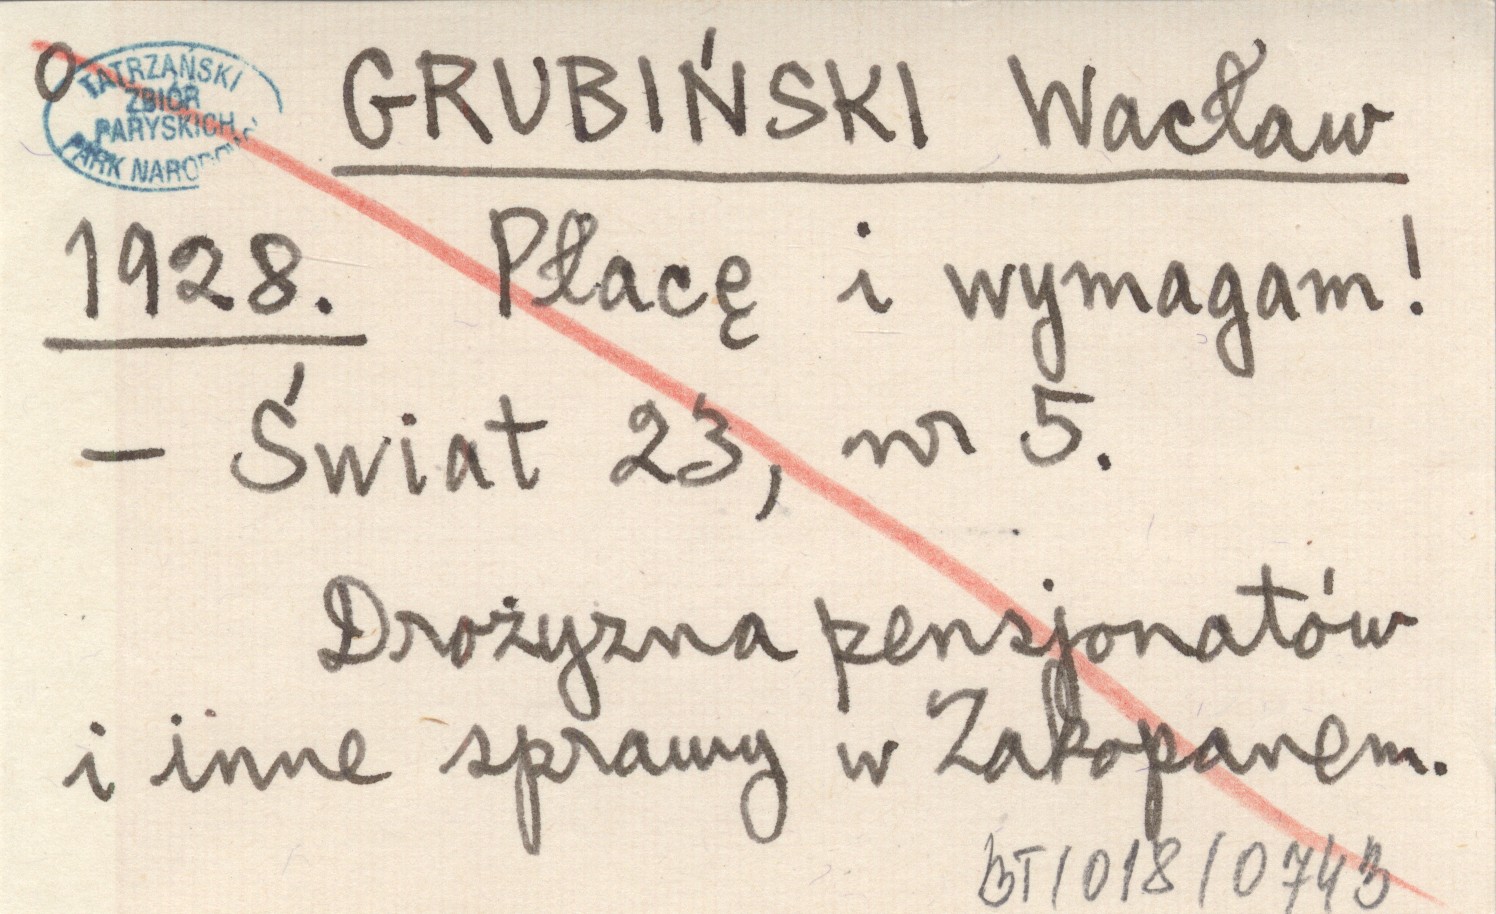 O
TATRZAŃSKI
ZBIÓR
PARYSKICH
PARK NARODOW
GRUBIŃSKI Wacław
1928. Płacę i wymagam!
- Świat 23, nr 5.
Drożyzna pensjonatów
i inne sprawy w Zakopanem.
BT/018/0743